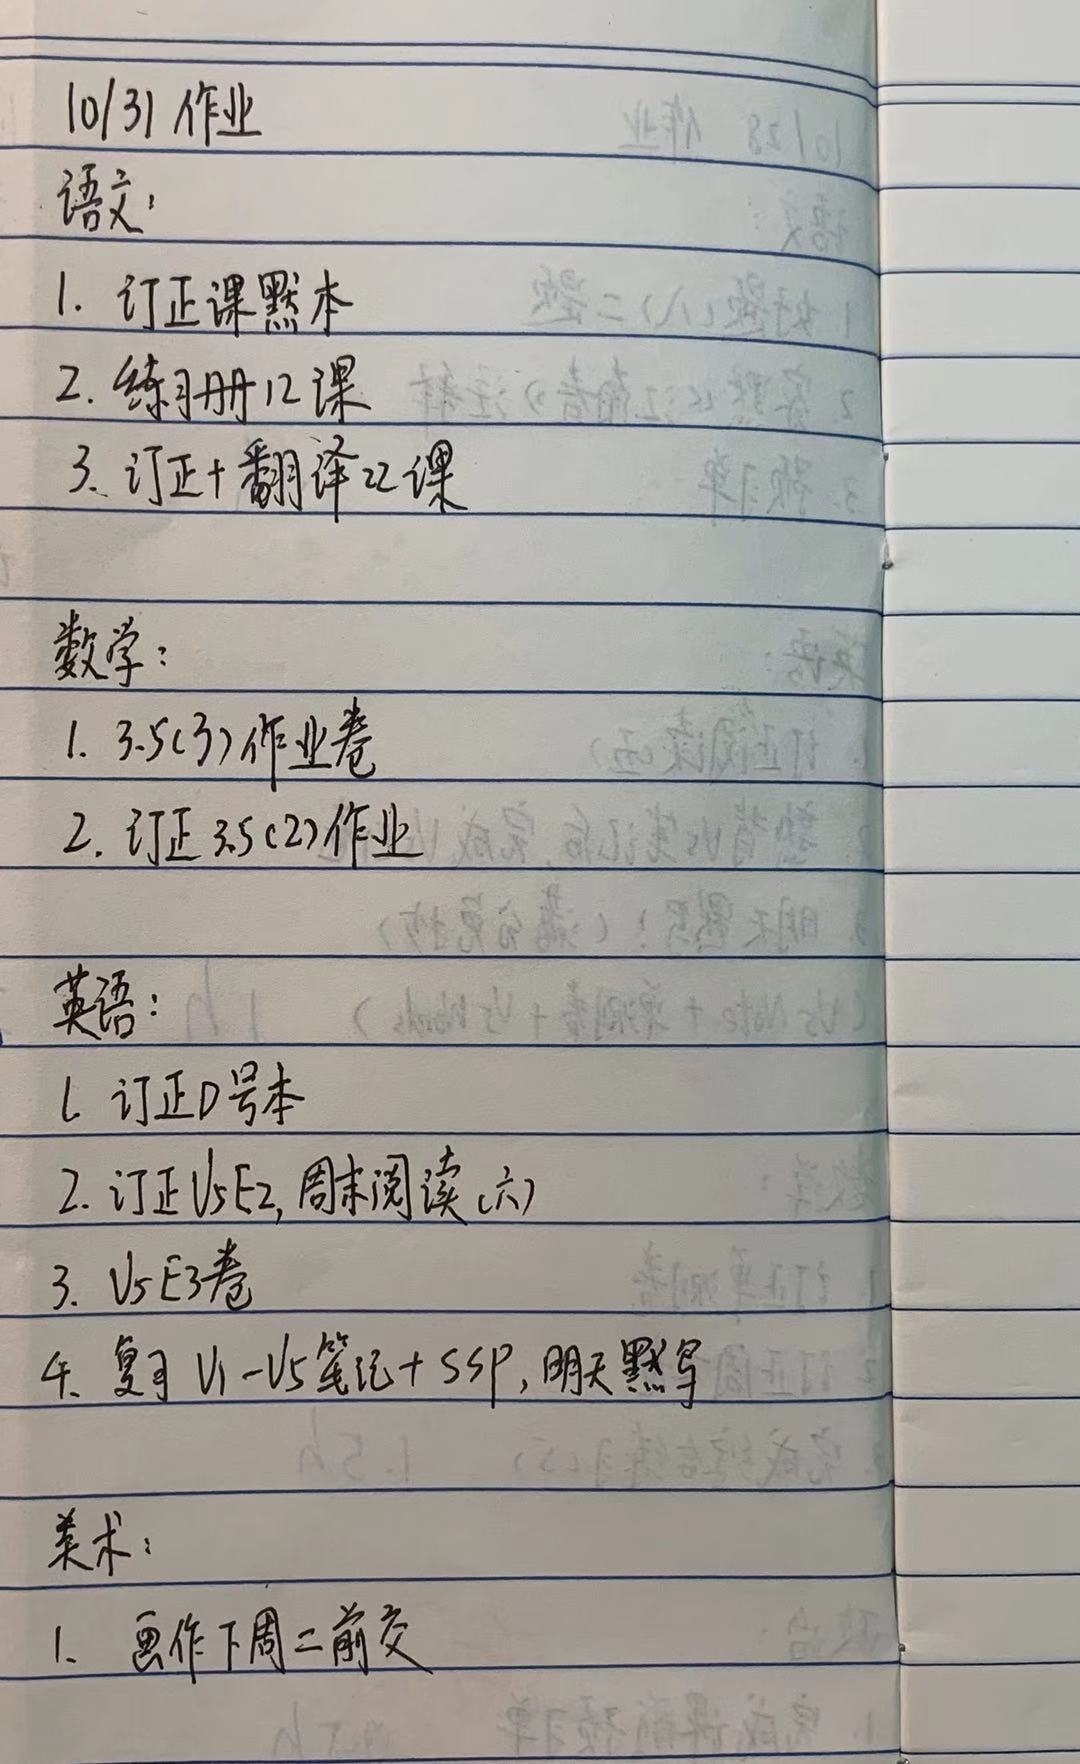 10/31 作业
语文:
1. 订正课默本
2. 练习册12课
3. 订正+翻译22课
数学:
1. 3.5(3)作业卷
2. 订正3.5(2)作业
英语:
1. 订正D号本
2. 订正U5E2,周末阅读(六)
3. U5E3卷
4. 复习U1-U5笔记+SSP,明天默写
美术:
1. 画作下周二前交